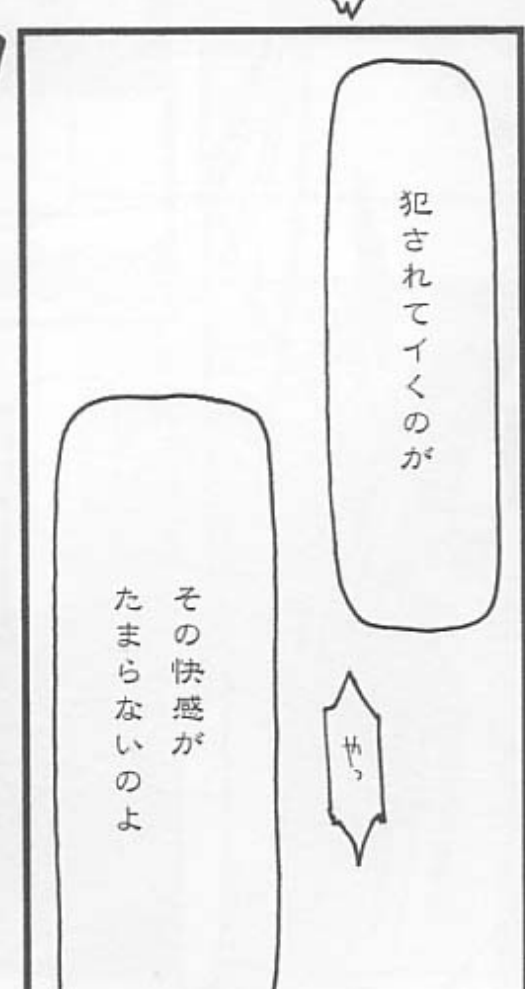 犯されてイくのが
やっ
その快感が
たまらないのよ